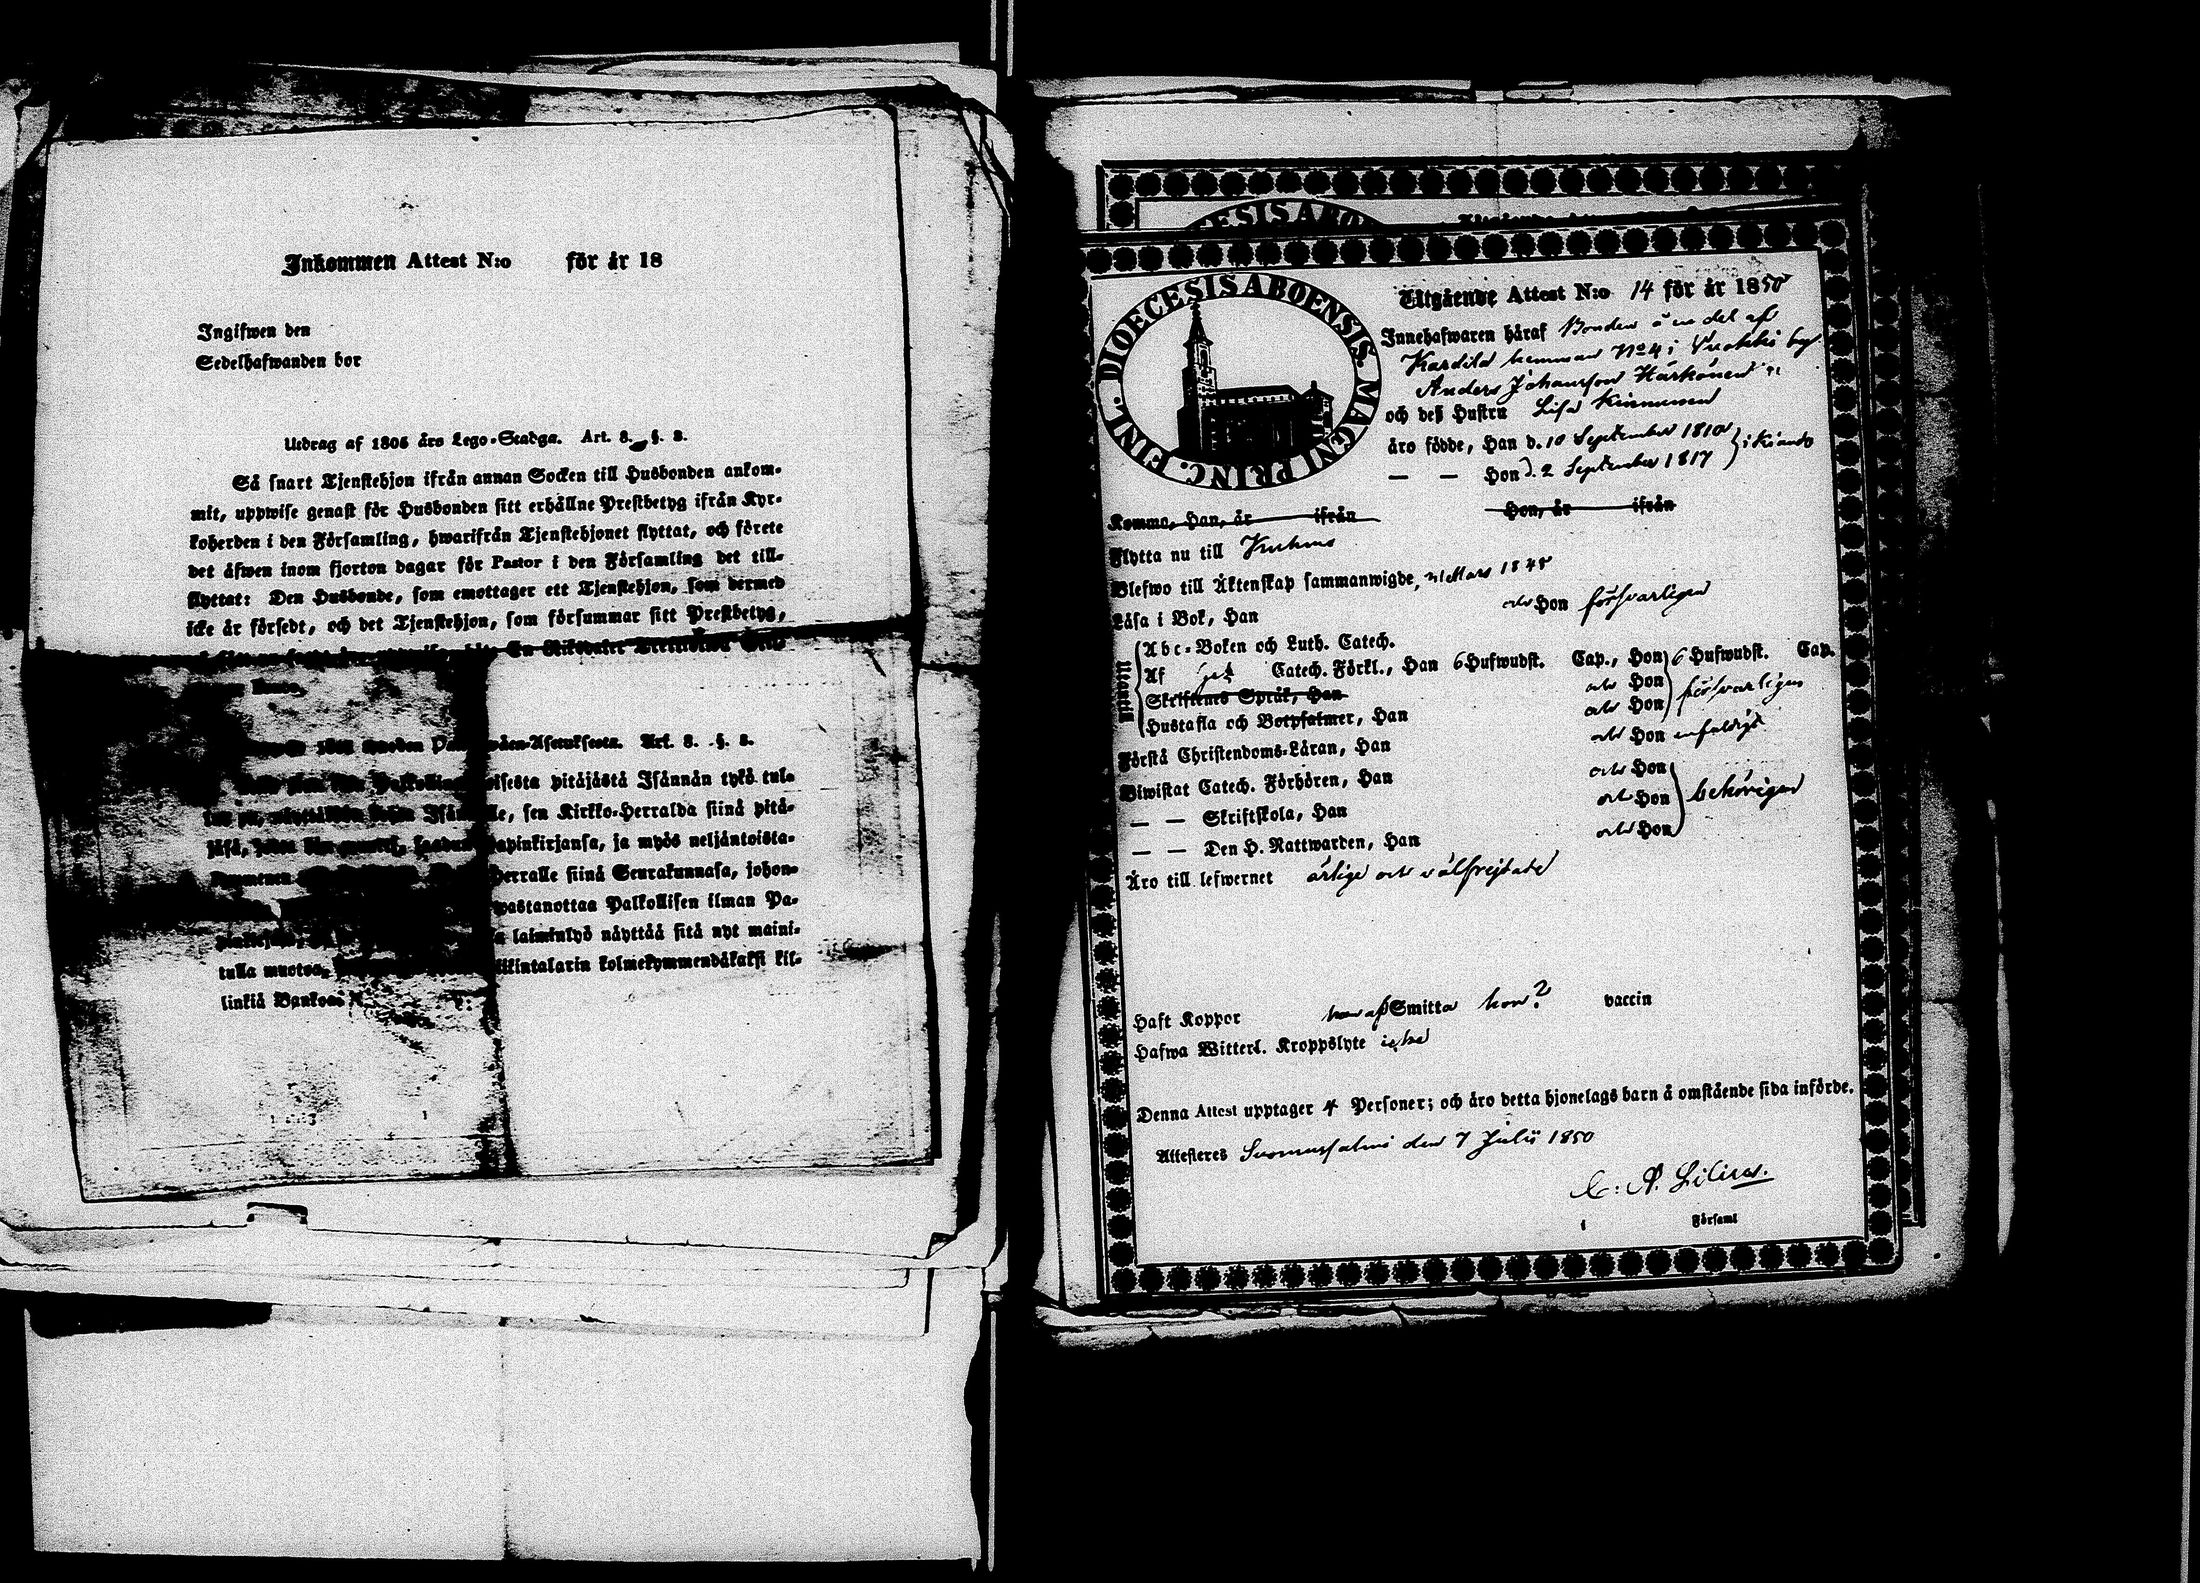 Inkommen Attest N:o för år 18
Ingifwen den
Sedelhafwanden bor
Utdrag af 1805 års Lego-Stadga. Art. 8. §. 8.
Så snart Tjenstehjon ifrån annan Socken till Husbonden ankom-
mit, uppwise genast för Husbonden sitt erhållne Prestbetyg ifrån Kyr-
koherden i den Församling, hwarifrån Tjenstehjonet flyttat, och förete
det äfwen inom fjorton dagar för Pastor i den Församling det till-
flyttat: Den Husbonde, som emottager ett Tjenstehjon, som dermed
icke är försedt, och det Tjenstehjon, som försummar sitt Prestbetyg,
En Riksdaler
Art. 8. §. 8.
pitäjästä Isännän tykö tul-
sen Kirkko-Herralda siinä pitä-
papinkirjansa, ja myös neljäntoista-
Herralle siinä Seurakunnasa, johon-
wastanottaa Palkollisen ilman Pa-
laiminlyö näyttää sitä nyt maini-
tulla muotoa, kolmekymmendäkaksi kil-
linkiä Bankos
DIOECESIS ABOENSIS. MAGNI PRINC. FINL.
Utgående Attest N:o 14 för år 1850
Innehafwaren häraf Bonden å en del af
hemman No 4 i Vuokki by
Anders Johansson Härkönen
och dess Hustru Lisa Kinnunen
äro födde, Han d. 10 September 1810
— — Hon d. 2 September 1817 } i Kiando
Komma, Han, år ifrån Hon, år ifrån
Flytta nu till Kuhmo
Blefwo till Äktenskap sammanwigde, Mars 18
Läsa i Bok, Han och Hon försvarligen
Utantill
Abc-Boken och Luth. Catech.
Af Catech. Förkl., Han 6 Hufwudst. Cap., Hon 6 Hufwudst. Cap.
Skriftenes Språk, Han och Hon försvarligen
Hustafla och Botpsalmer, Han och Hon
Förstå Christendoms-Läran, Han och Hon enfaldigt
Biwistat Catech. Förhören, Han och Hon
— — Skriftskola, Han och Hon behörigen
— — Den H. Nattwarden, Han och Hon
Äro till lefwernet ärlige och välfrejdade
Haft Koppor Smitta hon? vaccin
Hafwa Witterl. Kroppslyte icke
Denna Attest upptager 4 Personer; och äro detta hjonelags barn å omstående sida införde.
Attesteres Suomussalmi den 7 Julii 1850
C. A. Lilius.
Församl